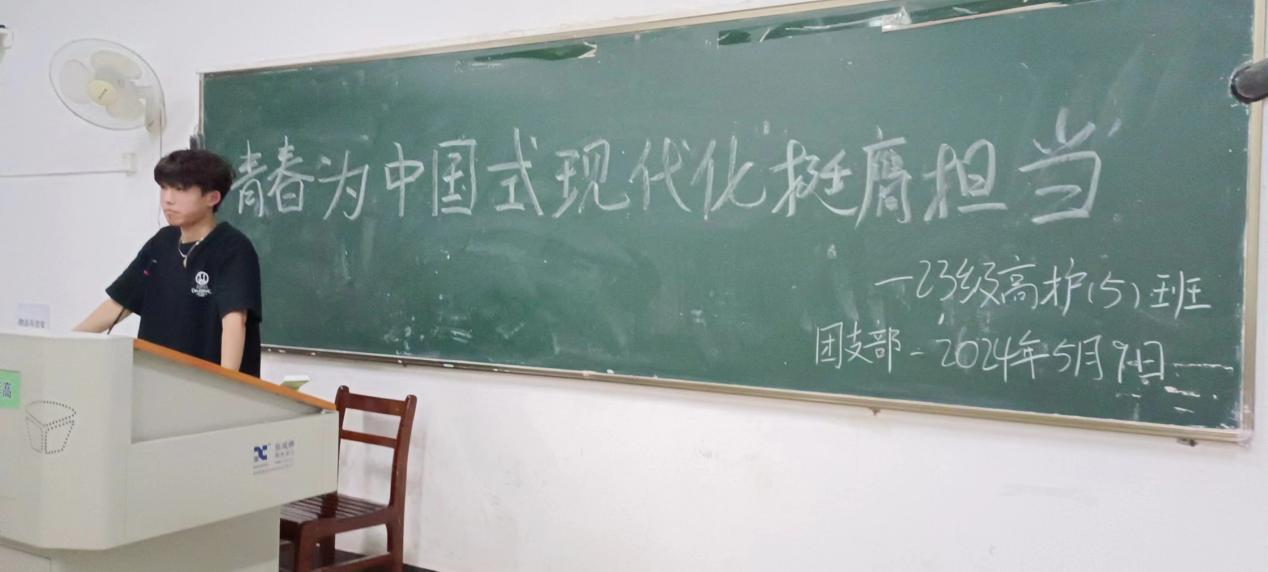 青春为中国式现代化挺膺担当
—23级高护(5)班
团支部-2024年5月9日
高